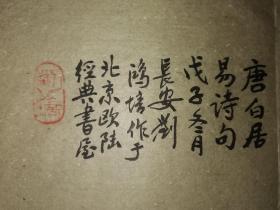 唐白居
易诗句
戊子冬月
長安劉
鴻培作于
北京欧陆
經典書屋